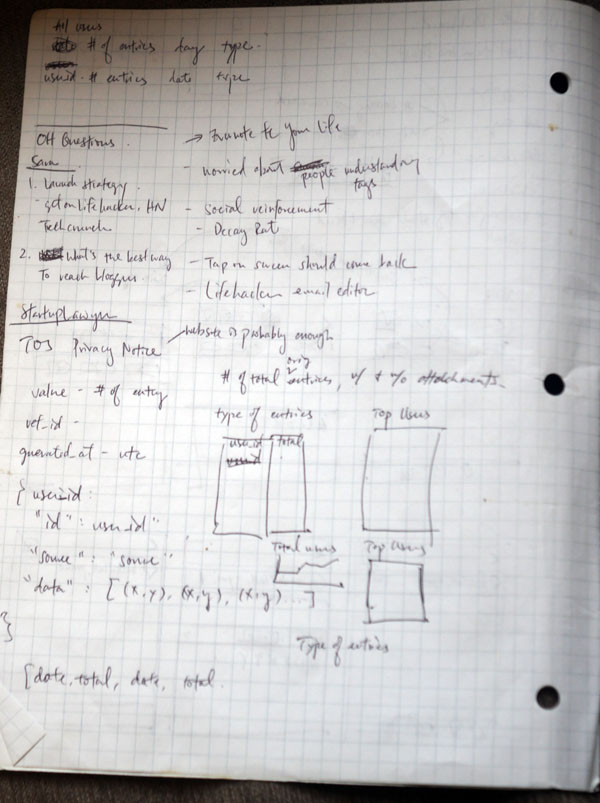 All users
# of entries day type.
userid - # entries date type
OH Questions.
Sara
1. Launch strategy
- get on Lifehacker, HN
Techcrunch
2. What's the best way
To reach bloggers.
→ Evernote for Your Life
- worried about people understanding
tags
- social reinforcement
- Decay Rate
- Tap on screen should come back
- Lifehacker email editor
StartupLawyer
TOS Privacy Notice
website is probably enough
value - # of entry
ref_id -
generated_at - utc
{ userid:
"id": user_id"
"source": "source"
"data": [(x,y), (x,y), (x,y)...]
}
[date, total, date, total.
# of total entries, w/ & w/o attachments.
type of entries
user_id total
Top Users
Total users
Top Users
Type of entries